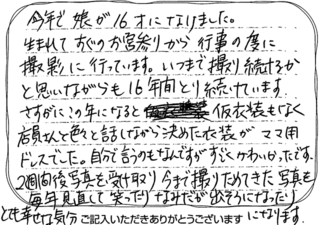 今年で娘が16才になりました。
生まれてすぐのお宮参りから行事の度に
撮影に行っています。いつまで撮り続けるか
と思いながらも16年間とり続けています
さすがにこの年になると 仮衣装もなく
店員さんと色々と話しながら決めた衣装が ママ用
ドレスでした。自分で言うのもなんですがすごくかわいかったです。
2週間後写真を受け取り今まで撮りためてきた写真を
毎年見直して笑ったりなみだが出そうになったり
とても幸せな気分になります。
ご記入いただきありがとうございます